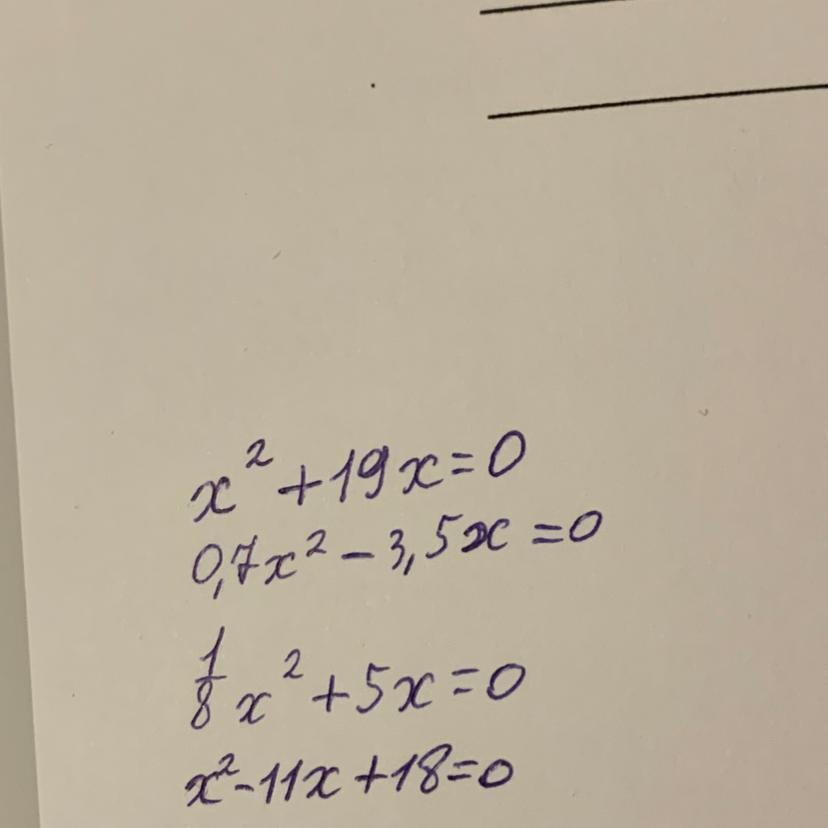 x² + 19x = 0
0,7x² - 3,5x = 0
1/8 x² + 5x = 0
x² - 11x + 18 = 0